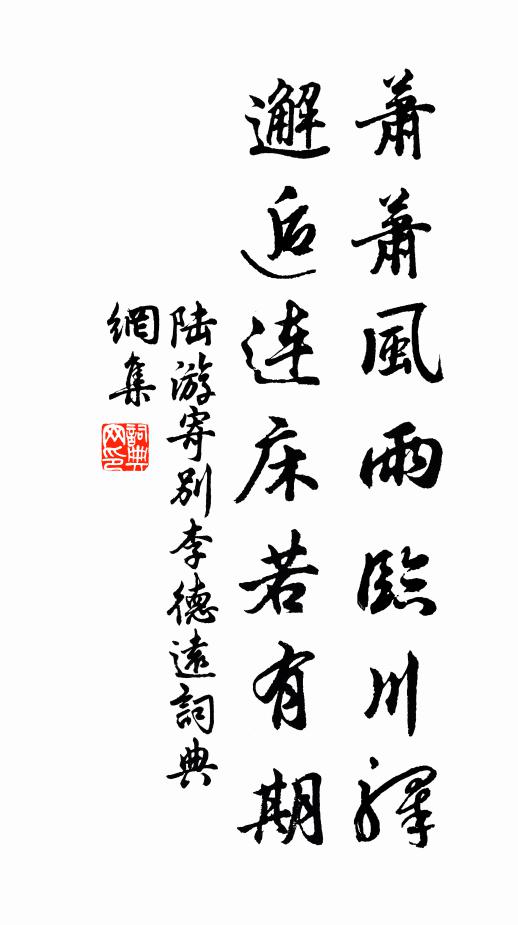 蕭蕭風雨臨川驛
邂逅連床若有期
陸游寄別李德遠詞典
網集
詞典
网印